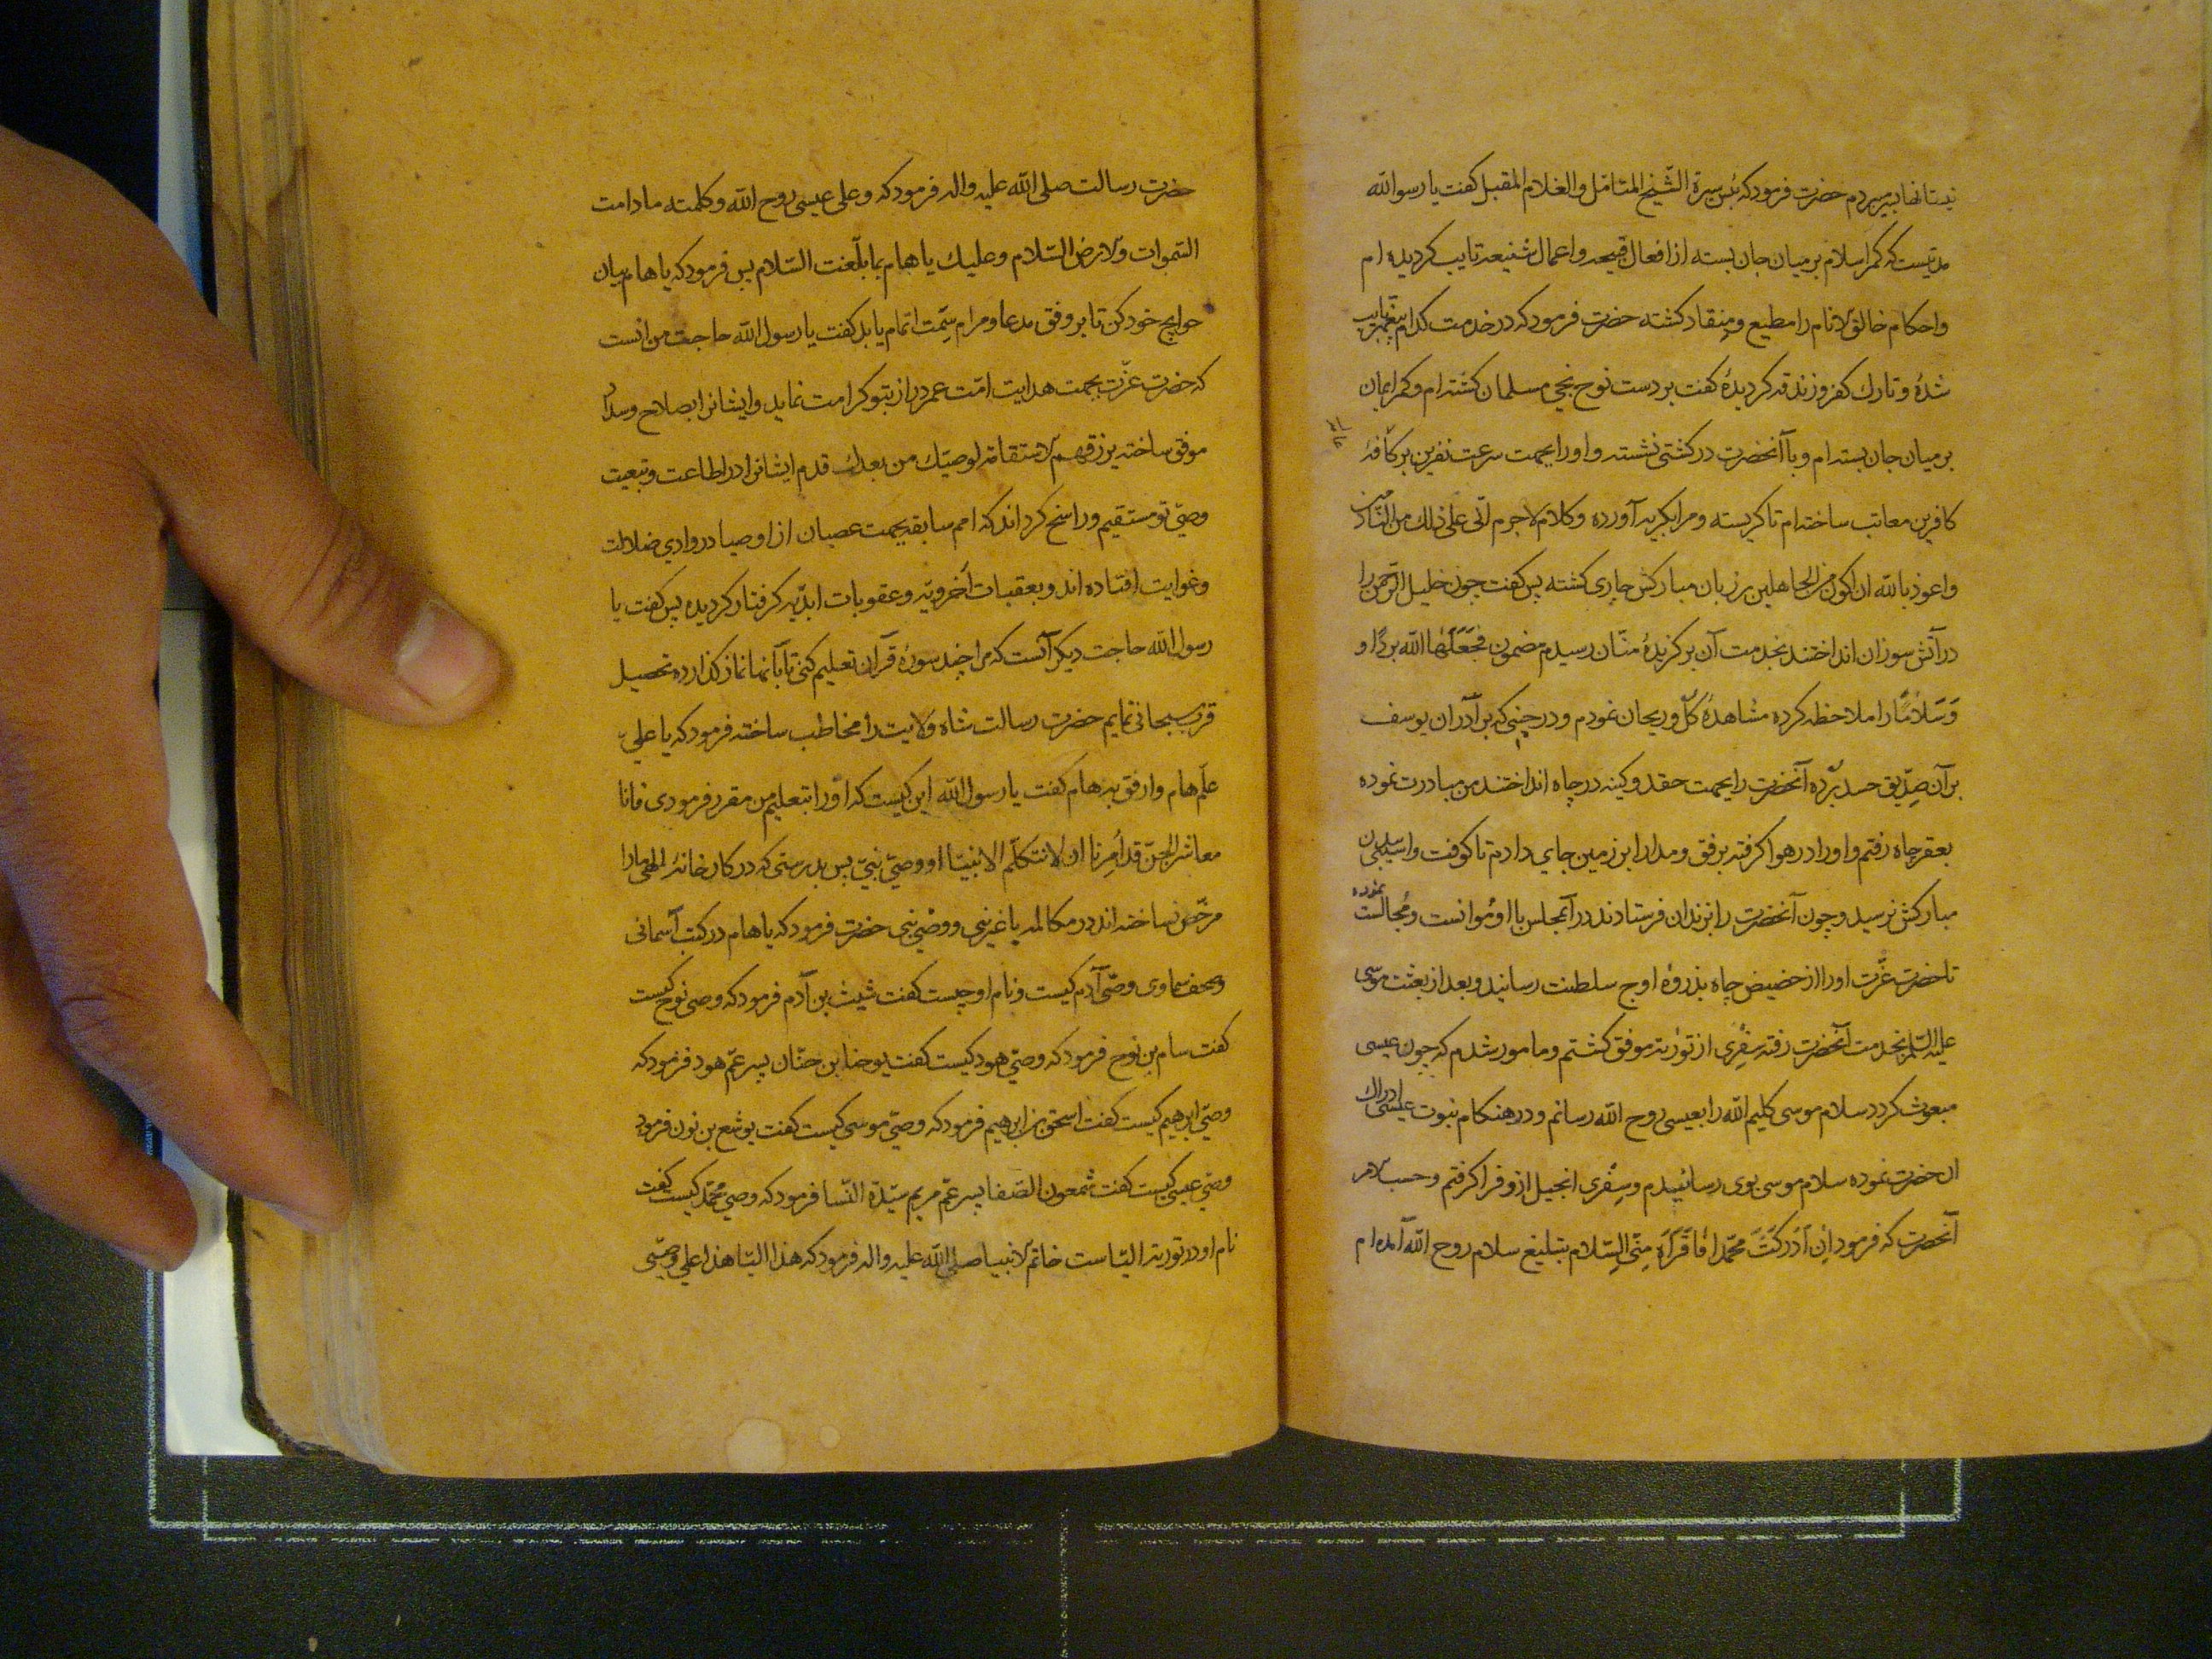 بسر میبردم حضرت فرمود که بئس سیرة الشیخ المتامّل والغلام المقبل کفت یا رسوالله
مدتیست که کمر اسلام بر میان جان بسته از افعال قبیحه و اعمال شنیعه تایب کردیده ام
و احکام خالق الانام را مطیع و منقاد کشته حضرت فرمود که در خدمت کدام پیغمبر تایب
شدهٔ و تارك کفر و زندقه کردیدهٔ کفت بر دست نوح نجی مسلمان کشته ام و کمر ایمان
بر میان جان بسته ام و با آنحضرت در کشتی نشسته و او را بجهت سرعت نفرین بر کافهٔ
کافرین معاتب ساخته ام تا کریسته و مرا بکریه آورده و کلام لاجرم انّی علی ذلك من النّادمین
و اعوذ بالله ان اکون من الجاهلین بر زبان مبارکش جاری کشته پس کفت چون خلیل الرّحمن را
در آتش سوزان انداختند بخدمت آن برکزیدهٔ منّان رسیدم مضمون فَجَعَلَهَا الله بردًا و
وَسَلامًا را ملاحظه کرده مشاهدهٔ کل و ریحان نمودم و در حینی که برادران یوسف
بر آن صِدّیق حسد برّده آنحضرت را بجهت حقد و کینه در چاه انداختند من مبادرت نموده
بقعر چاه رفتم و او را در هوا کرفته برفق و مدارا بر زمین جای دادم تا کوفت و آسیبی ببدن
مبارکش نرسید و چون آنحضرت را بزندان فرستادند در آنمجلس با او مُوانست و مُجالست نموده
تا حضرت عزّت او را از حضیض چاه بذروهٔ اوج سلطنت رسانید و بعد از بعثت موسی
علیه السّلم بخدمت آنحضرت رفته سِفْرِی از توریة موفق کشتم و مامور شدم که چون عیسی
مبعوث کردد سلام موسی کلیم الله را بعیسی روح الله رسانم و در هنکام نبوت عیسی ادراك
ان حضرت نموده سلام موسی بوی رسانیدم و سِفْری انجیل ازو فرا کرفتم و حسب الامر
آنحضرت که فرمود اِن اَدْرکتَ محمّدا فاَقْرَأه مِنّی السّلام بتبلیغ سلام روح الله آمده ام
حضرت رسالت صلی الله علیه واله فرمود که و علی عیسی روح الله و کلمته ما دامت
السّموات والارض السّلام و علیك یا هام بما بلّغت السّلام پس فرمود که یا هام بیان
حوایج خود کن تا بر وفق مدعا و مرام سِمّت اتمام یابد کفت یا رسول الله حاجت من انست
که حضرت عزّت بجهت هدایت امّت عمر دراز بتو کرامت نماید و ایشانرا بصلاح و سداد
موفق ساخته یرزقهم الاستقامة لوصیّك من بعدك قدم ایشانرا در اطاعت و تبعیت
وصیّ تو مستقیم و راسخ کرداند که امم سابقه بجهت عصیان از اوصیا در وادی ضلالت
و غوایت افتاده اند و بعقبات اُخرویّه و عقوبات ابدیّه کرفتار کردیده پس کفت یا
رسول الله حاجت دیکر آنست که مرا چند سورهٔ قرآن تعلیم کنی تا بآنها نماز کذارده تحصیل
قرب سبحانی نمایم حضرت رسالت شاه ولایت را مخاطب ساخته فرمود که یا علیّ
علّم هام وارفق به هام کفت یا رسول الله این کیست که او را بتعلیم من مقرر فرمودی فانا
معاشر الجنّ قد اُمِرنا ان لا نتکلّم الا نبیّا او وصیّ نبیّ پس بدرستی که در کار خانهٔ الهی مارا
مرخّص نساخته اند در مکالمه با غیر نبی و وصّی نبی حضرت فرمود که یا هام در کتب آسمانی
و صحف سماوی وصّی آدم کیست و نام او چیست کفت شیث بن آدم فرمود که وصی نوح کیست
کفت سام بن نوح فرمود که وصیّ هود کیست کفت یوحنا بن حنّان پسر عمّ هود فرمود که
وصیّ ابرهیم کیست کفت اسحق بن ابرهیم فرمود که وصیّ موسی کیست کفت یوشع بن نون فرمود
وصی عیسی کیست کفت شمعون الصّفا پسر عمّ مریم سیّدة النّسا فرمود که وصی محمّد کیست کفت
نام او در توریة الیّاست خاتم الانبیا صلی الله علیه واله فرمود که هذا الیّا هذا علی وصیّی